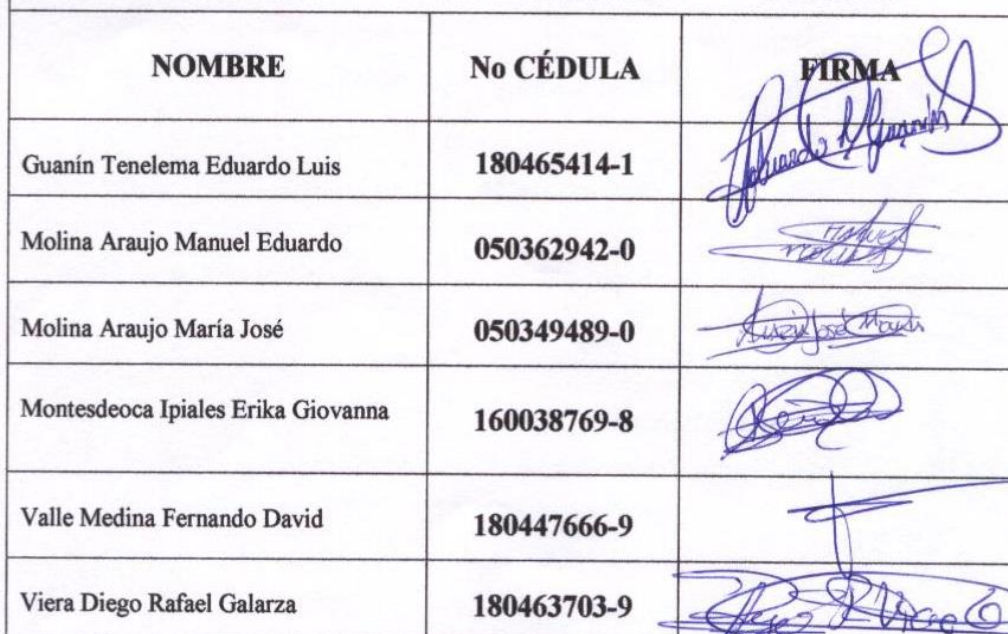 NOMBRE No CÉDULA FIRMA
Guanín Tenelema Eduardo Luis 180465414-1 Eduardo L Guanín
Molina Araujo Manuel Eduardo 050362942-0 Manuel
Molina
Molina Araujo María José 050349489-0 María José Molina
Montesdeoca Ipiales Erika Giovanna 160038769-8
Valle Medina Fernando David 180447666-9
Viera Diego Rafael Galarza 180463703-9